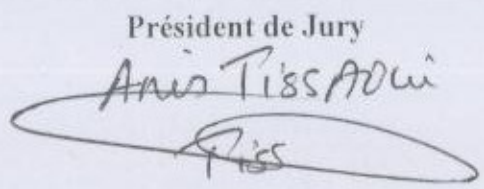 Président de Jury
Anis TissAoui
Tiss